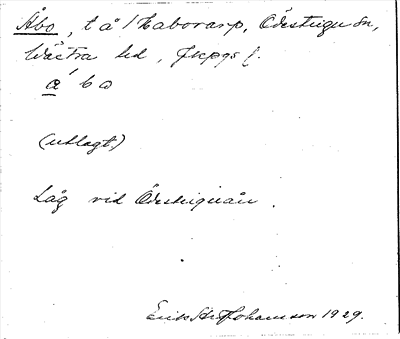 Åbo, t å 1 Haboravp, Ödestugu sn,
Västra hd, Jkpgs l.
a´ b ω
(utlagt)
Låg vid Ödestuguån.
Erik Johansson 1929.